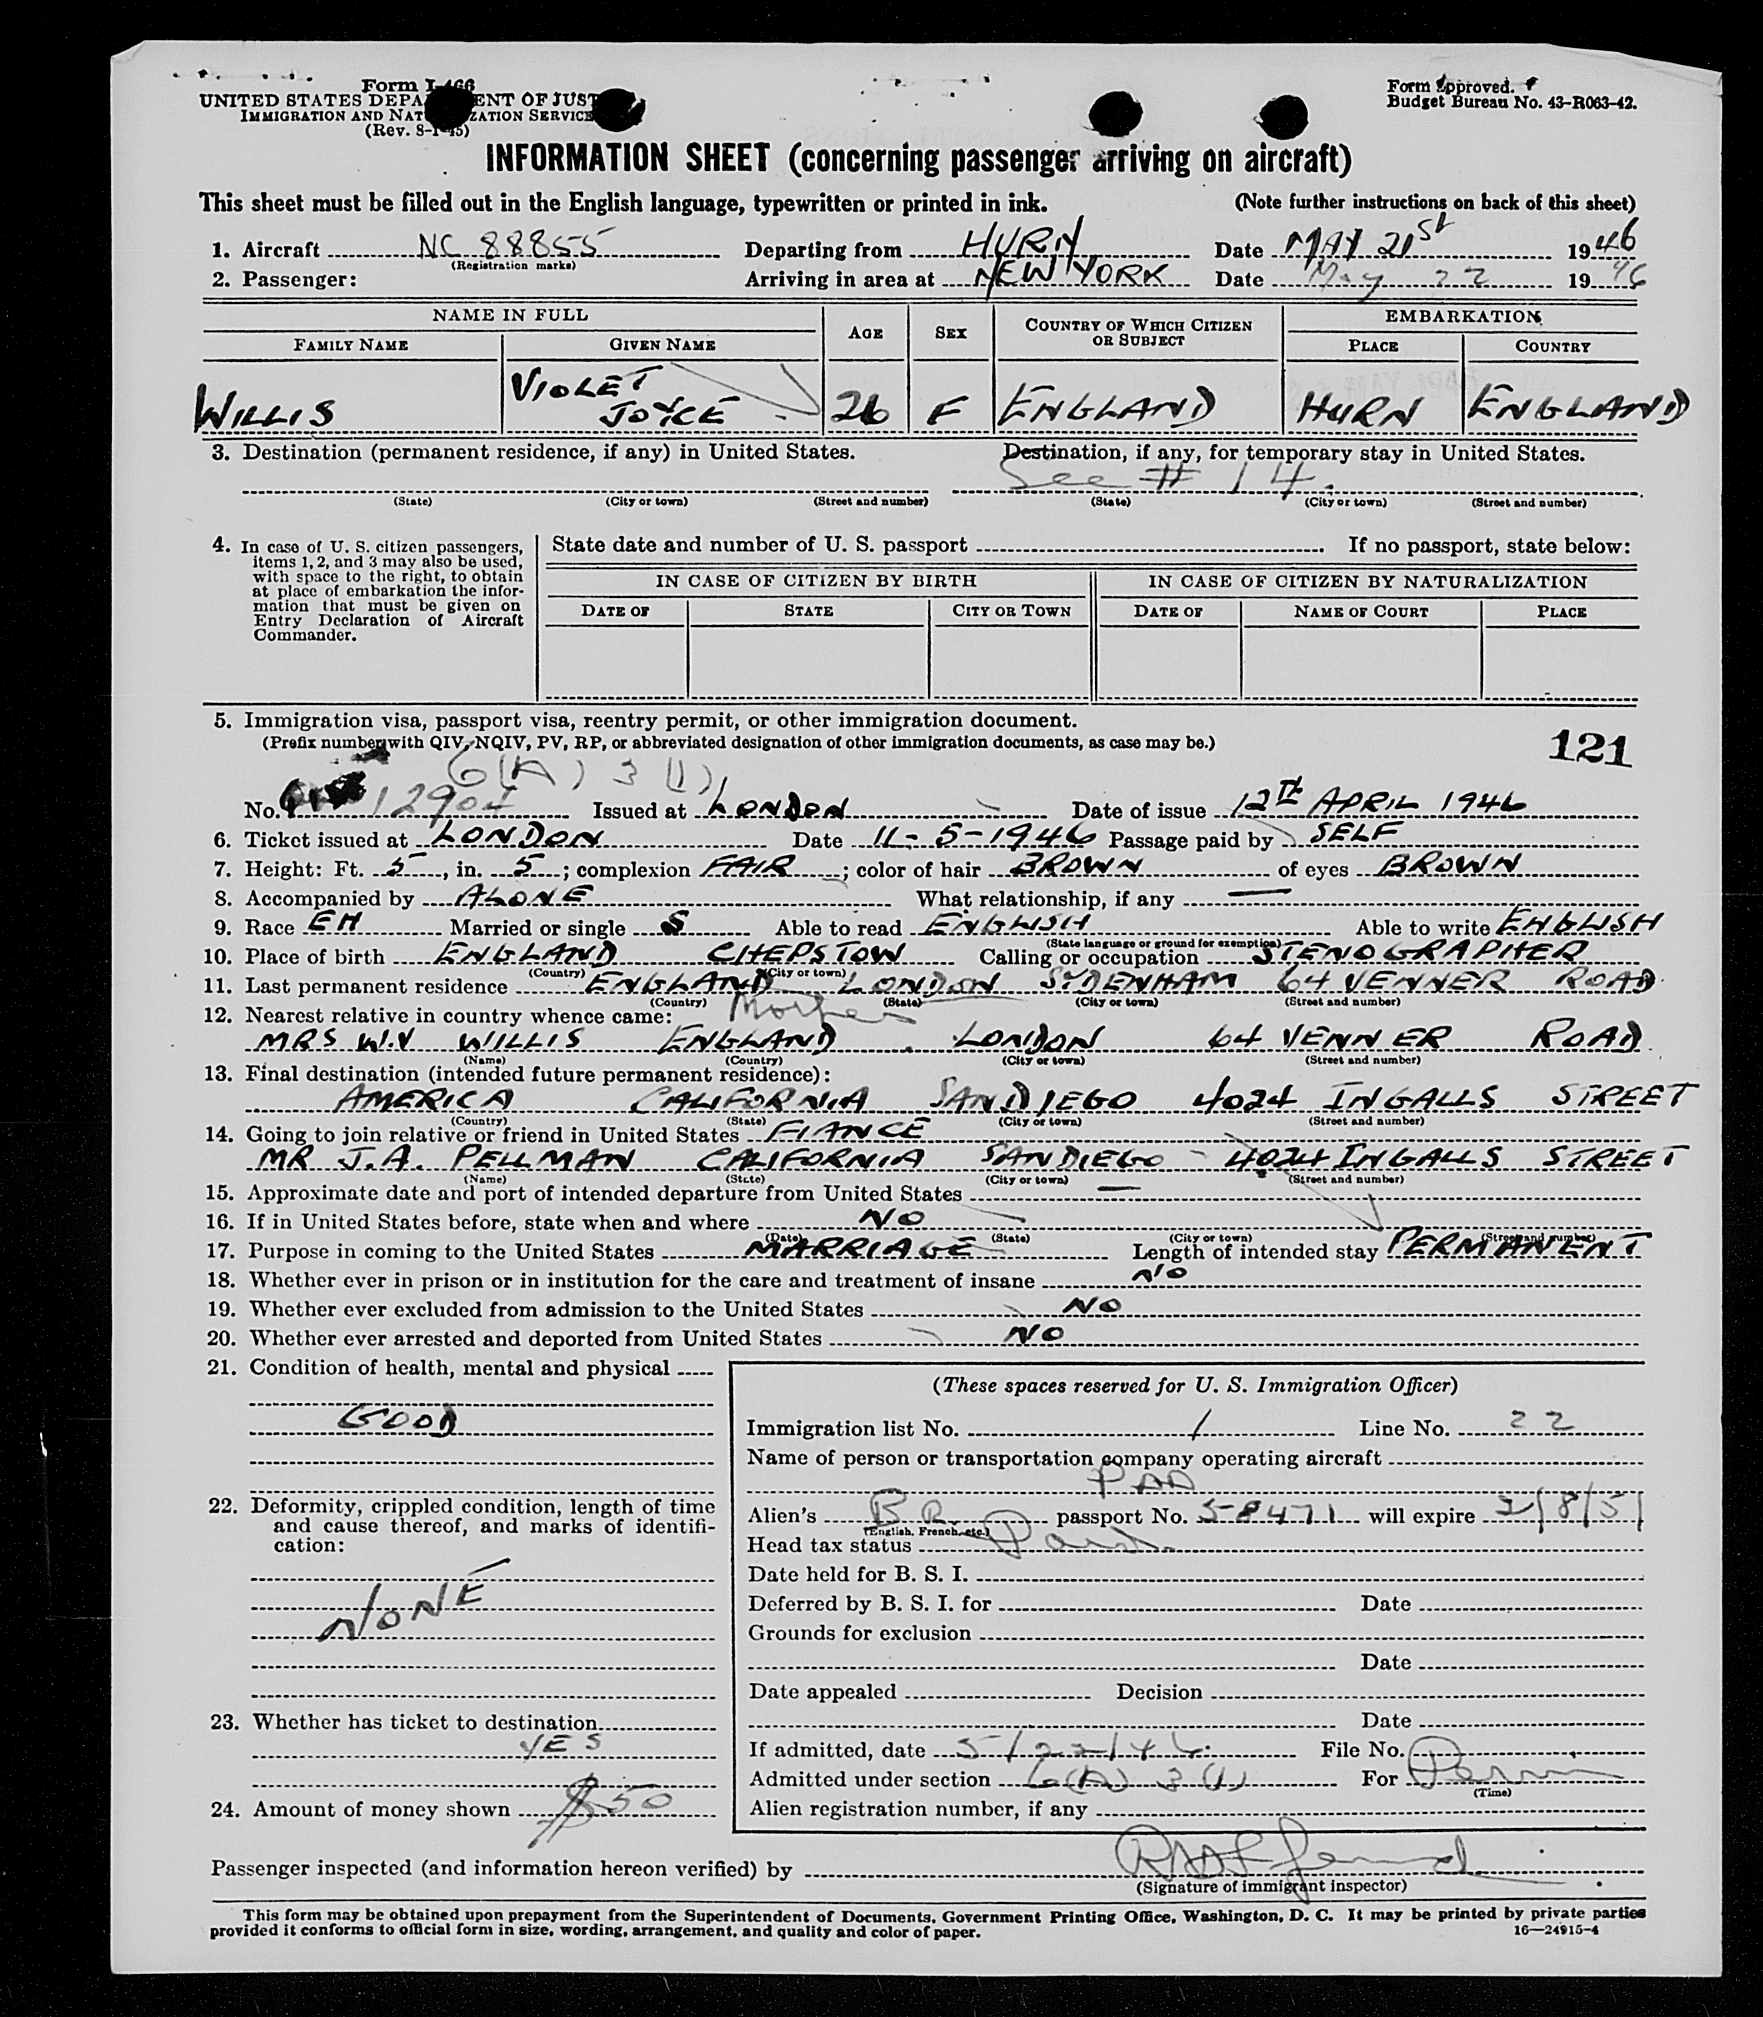 Form I-466 Form approved.
UNITED STATES DEPARTMENT OF JUSTICE Budget Bureau No. 43-R063-42.
IMMIGRATION AND NATURALIZATION SERVICE
(Rev. 8-1-45)
INFORMATION SHEET (concerning passenger arriving on aircraft)
This sheet must be filled out in the English language, typewritten or printed in ink. (Note further instructions on back of this sheet)
1. Aircraft NC 88855 Departing from HURN Date MAY 21st 1946
(Registration marks)
2. Passenger: Arriving in area at NEW YORK Date May 22 1946
NAME IN FULL AGE SEX COUNTRY OF WHICH CITIZEN OR SUBJECT EMBARKATION
FAMILY NAME GIVEN NAME PLACE COUNTRY
WILLIS VIOLET JOYCE 26 F ENGLAND HURN ENGLAND
3. Destination (permanent residence, if any) in United States. Destination, if any, for temporary stay in United States.
See # 14.
(State) (City or town) (Street and number) (State) (City or town) (Street and number)
4. In case of U. S. citizen passengers, State date and number of U. S. passport If no passport, state below:
items 1, 2, and 3 may also be used,
with space to the right, to obtain IN CASE OF CITIZEN BY BIRTH IN CASE OF CITIZEN BY NATURALIZATION
at place of embarkation the infor-
mation that must be given on DATE OF STATE CITY OR TOWN DATE OF NAME OF COURT PLACE
Entry Declaration of Aircraft
Commander.
5. Immigration visa, passport visa, reentry permit, or other immigration document.
(Prefix number with QIV, NQIV, PV, RP, or abbreviated designation of other immigration documents, as case may be.) 121
6(A) 3 (1)
No. 12904 Issued at LONDON Date of issue 12th APRIL 1946
6. Ticket issued at LONDON Date 11-5-1946 Passage paid by SELF
7. Height: Ft. 5, in. 5; complexion FAIR; color of hair BROWN of eyes BROWN
8. Accompanied by ALONE What relationship, if any —
9. Race EN Married or single S Able to read ENGLISH Able to write ENGLISH
(State language or ground for exemption)
10. Place of birth ENGLAND CHEPSTOW Calling or occupation STENOGRAPHER
(Country) (City or town)
11. Last permanent residence ENGLAND LONDON SYDENHAM 64 VENNER ROAD
(Country) (State) (City or town) (Street and number)
12. Nearest relative in country whence came: Mother
MRS W.V WILLIS ENGLAND LONDON 64 VENNER ROAD
(Name) (Country) (City or town) (Street and number)
13. Final destination (intended future permanent residence):
AMERICA CALIFORNIA SAN DIEGO 4024 INGALLS STREET
(Country) (State) (City or town) (Street and number)
14. Going to join relative or friend in United States FIANCE
MR J.A. PELLMAN CALIFORNIA SAN DIEGO - 4024 INGALLS STREET
(Name) (State) (City or town) (Street and number)
15. Approximate date and port of intended departure from United States —
16. If in United States before, state when and where NO
(Date) (State) (City or town) (Street and number)
17. Purpose in coming to the United States MARRIAGE Length of intended stay PERMANENT
18. Whether ever in prison or in institution for the care and treatment of insane NO
19. Whether ever excluded from admission to the United States NO
20. Whether ever arrested and deported from United States NO
21. Condition of health, mental and physical
GOOD
22. Deformity, crippled condition, length of time
and cause thereof, and marks of identifi-
cation:
NONE
23. Whether has ticket to destination
YES
24. Amount of money shown $50
(These spaces reserved for U. S. Immigration Officer)
Immigration list No. 1 Line No. 22
Name of person or transportation company operating aircraft
PAA
Alien's BR. passport No. 58471 will expire 2/8/51
(English, French, etc.)
Head tax status Paid
Date held for B. S. I.
Deferred by B. S. I. for Date
Grounds for exclusion
Date
Date appealed Decision
Date
If admitted, date 5/22/46 File No.
Admitted under section 6(A) 3 (1) For Perm
(Time)
Alien registration number, if any
Passenger inspected (and information hereon verified) by
(Signature of immigrant inspector)
This form may be obtained upon prepayment from the Superintendent of Documents, Government Printing Office, Washington, D. C. It may be printed by private parties
provided it conforms to official form in size, wording, arrangement, and quality and color of paper. 16—24915-4